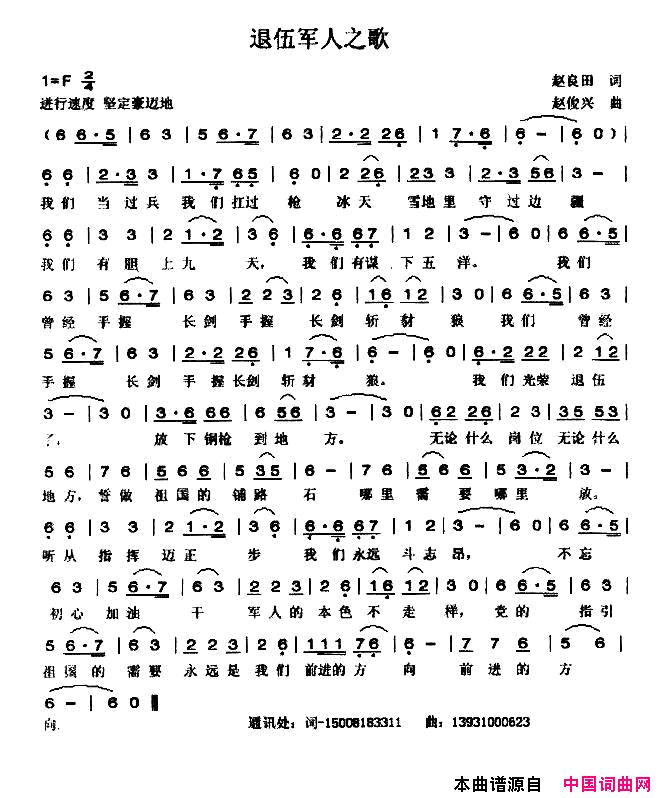 退伍军人之歌
1=F 2/4 赵良田 词
进行速度 坚定豪迈地 赵俊兴 曲
(6 6·5 | 6 3 | 2·3 2 6 | 6 3 | 2·2 2 6 | 1 7·6 | 6 - | 6 0) |
6 6 | 2·3 3 3 | 1·7 6 5 | 6 0 | 2 2 6 | 2 3 3 | 2·3 5 6 | 3 - |
我们 当过兵 我们扛过 枪 冰天 雪地里 守过边 疆
6 6 | 3 3 | 2 1·2 | 3 6 | 6·6 6 7 | 1 2 | 3 - | 6 0 | 6 6·5 |
我们 有胆 上九 天， 我们有谋 下五 洋。 我们
6 3 | 5 6·7 | 6 3 | 2 2 3 | 2 6 | 1 6 1 2 | 3 0 | 6 6·5 | 6 3 |
曾经 手握 长剑 手握 长剑 斩豺 狼 我们 曾经
5 6·7 | 6 3 | 2·2 2 6 | 1 7·6 | 6 - | 6 0 | 6·2 2 2 | 2 1 2 |
手握 长剑 手握长剑 斩豺 狼。 我们光荣 退伍
3 - | 3 0 | 3·6 6 6 | 6 5 6 | 3 - | 3 0 | 6 2 2 6 | 2 3 | 3 5 5 3 |
了， 放下钢枪 到地 方。 无论什么 岗位 无论什么
5 6 | 7 6 | 5 6 6 | 5 3 5 | 6 - | 7 6 | 5 6 6 | 5 3·2 | 3 - |
地方，誓做 祖国的 铺路 石 哪里 需要 哪里 放。
6 6 | 3 3 | 2 1·2 | 3 6 | 6·6 6 7 | 1 2 | 3 - | 3 0 | 6 6·5 |
听从 指挥 迈正 步 我们永远 斗志 昂， 不忘
6 3 | 5 6·7 | 6 3 | 2 2 3 | 2 6 | 1 6 1 2 | 3 - | 6 6·5 | 6 3 |
初心 加油 干 军人的 本色 不走 样，党的 指引
5 6·7 | 6 3 | 2 2 3 | 2 6 | 1 1 1 7 6 | 6 - | 6 6·5 | 6 3 |
祖国的 需要 永远是 我们 前进的方 向 前进的 方
6 - | 6 0 ‖
向. 通讯处：词-15008183311 曲：13931000623
本曲谱源自 中国词曲网